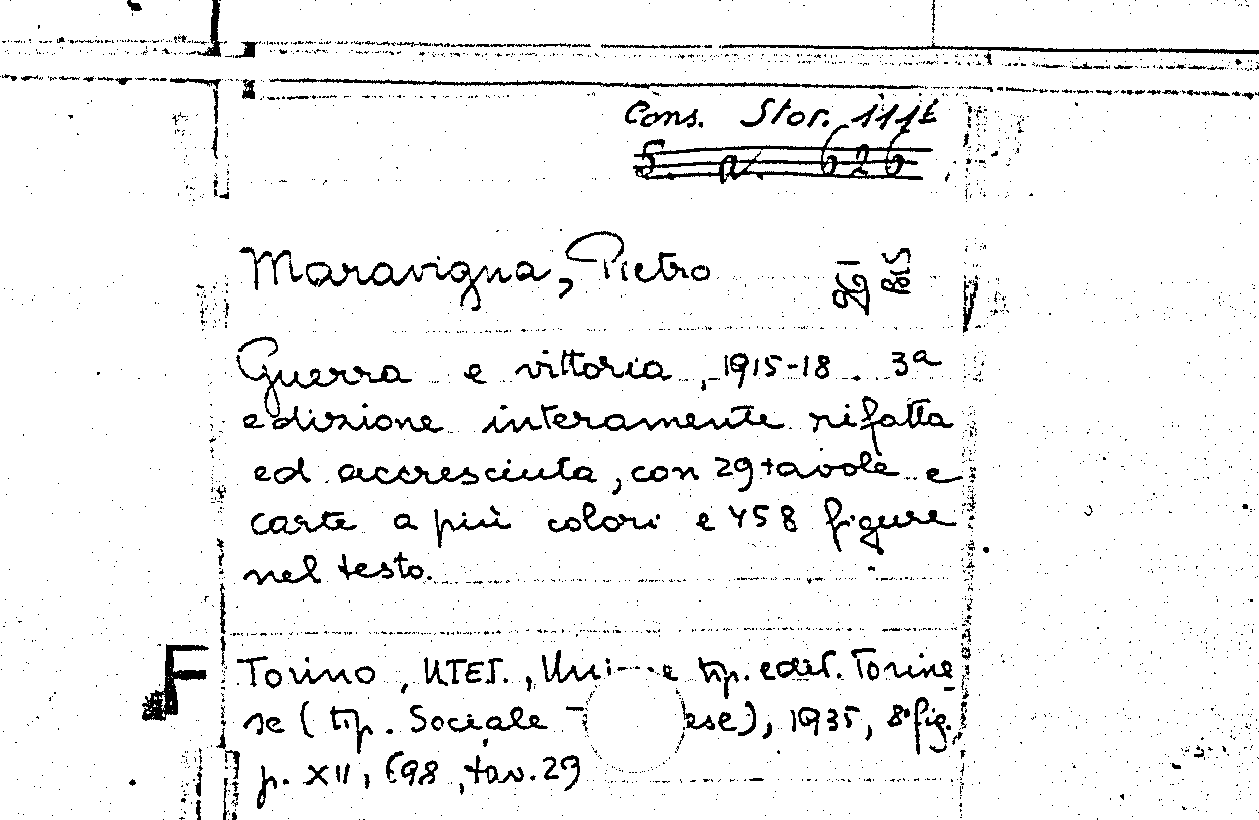 Cons. Stor. 111t
S. a. 626
Maravigna, Pietro
BIS
Guerra e vittoria, 1915-18. 3a
edizione interamente rifatta
ed accresciuta, con 29 tavole e
carte a più colori e 458 figure
nel testo.
F
Torino, UTET., tip. edit. Torine
se (tip. Sociale ese), 1935, 8° fig.,
p. XII, 698, tav. 29